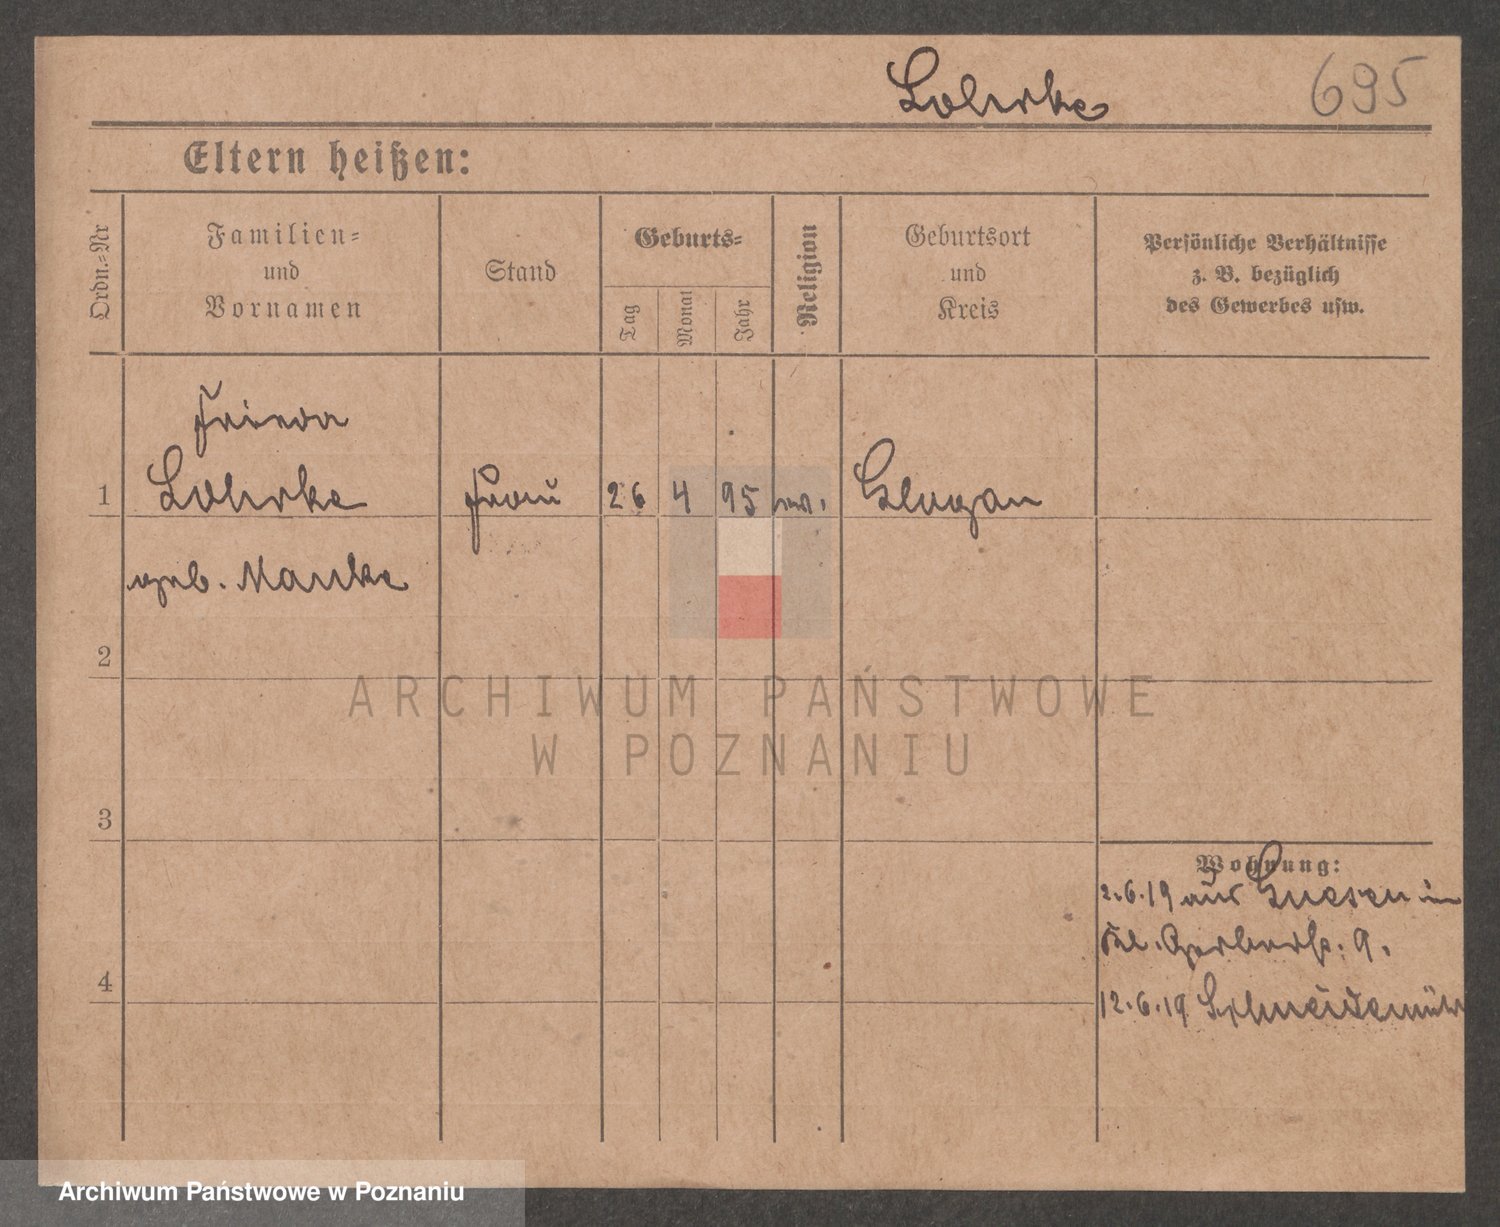 Lohrke 695
Eltern heißen:
Ordn.=Nr
Familien=
und
Vornamen
Stand
Geburts=
Tag
Monat
Jahr
Religion
Geburtsort
und
Kreis
Persönliche Verhältnisse
z. B. bezüglich
des Gewerbes usw.
Frieda
1 Lohrke Frau 26 4 95 ev. Glogau
geb. Manke
2
ARCHIWUM PAŃSTWOWE
W POZNANIU
3
Wohnung:
2.6.19 aus Gnesen in
Kl. Gerberstr. 9.
4
12.6.19 Schneidemühl
Archiwum Państwowe w Poznaniu